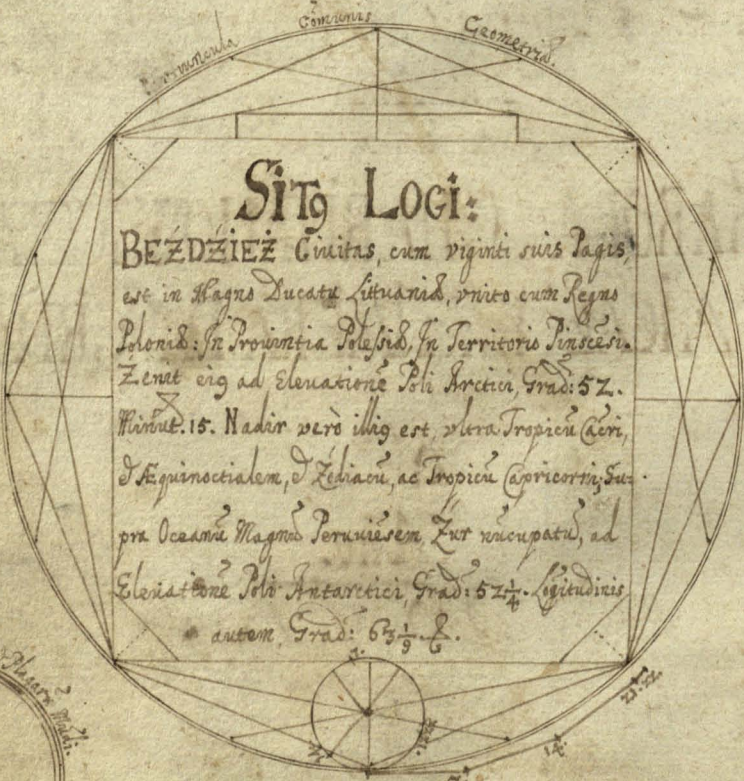 Comunis
Geometriæ.
SIT9 LOGI:
BEŹDŹIEŻ Ciuitas, cum viginti suis Pagis,
est in Magno Ducatu Littuaniæ, vnito cum Regno
Poloniæ: In Prouintia Polessiæ, In Territorio Pinscēsi.
Zenit ei9 ad Eleuationē Poli Arctici, Grad: 52.
Minut. 15. Nadir verò illi9 est, vltra Tropicū Cācri,
& Æquinoctialem, & Zediacū, ac Tropicū Capricorni, Su-
pra Oceanū Magnū Peruuiēsem, Zur nūcupatū, ad
Eleuationē Poli Antarctici, Grad: 52 1/4. Lōgitudinis
autem, Grad: 63 1/9.
Plagarū Mūdi.
14.
21. 22.